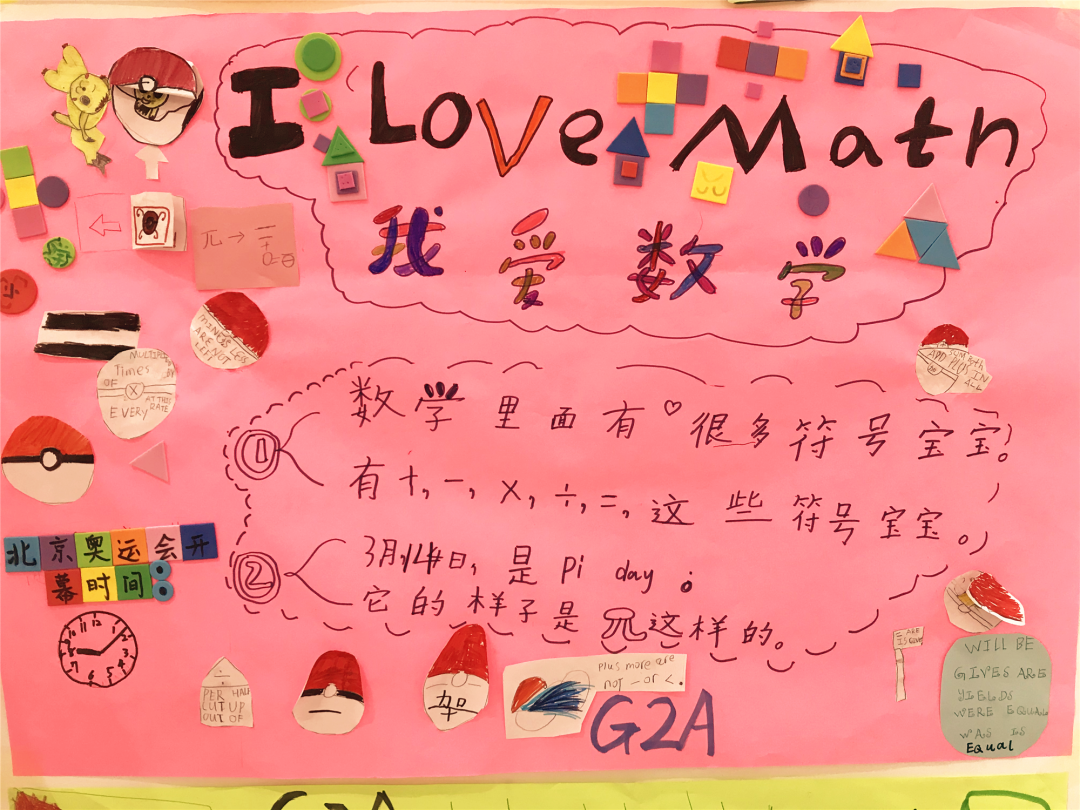 I Love Math
我爱数学
π → 二
小
MINUS LESS
ARE NOT
LEFT
MULTIPLIED BY
Times
OF X AT THIS
EVERY RATE
ADD PLUS IN
ALL
① 数学里面有♡很多符号宝宝。
有+,-,×,÷,=,这些符号宝宝。
② 3月14日,是Pi day。
它的样子是π这样的。
北京奥运会开
幕时间:
12 1 2 3 4 5 6 7 8 9 10 11
PER HALF
CUT UP
OUT OF
加
Plus more are
not - or <.
G2A
= ARE
IS
WILL BE
GIVES ARE
YIELDS
WERE EQUAL
WAS IS
EQUAL
G2A